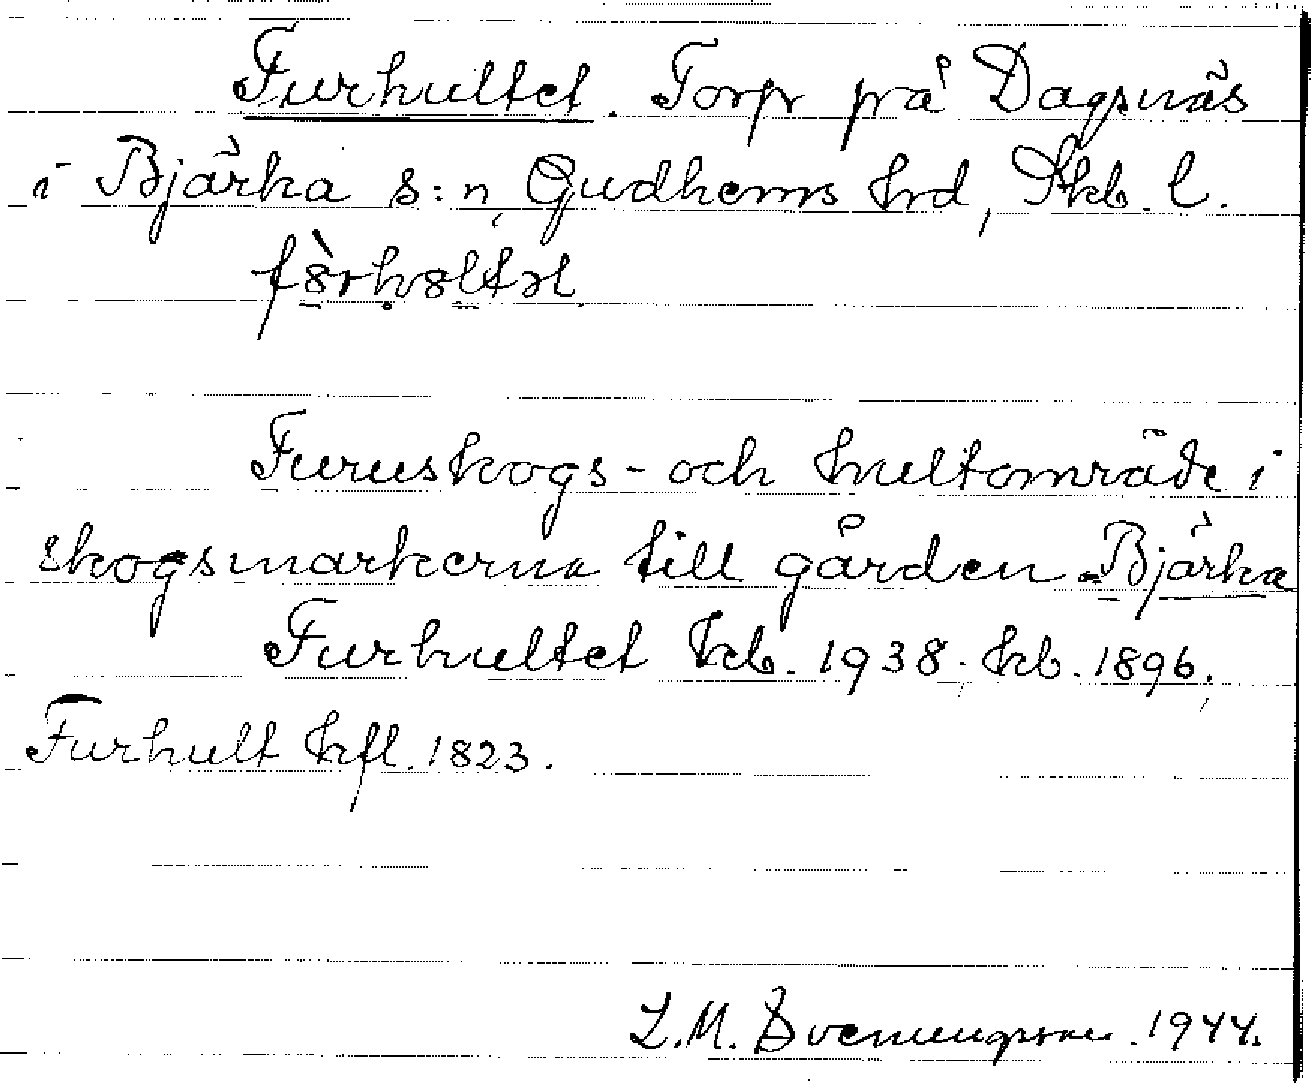 Furhultet. Torp på Dagsnäs
i Bjärka s:n, Gudhems hrd, Skb. l.
Furuskogs- och hultområde i
skogsmarkerna till gården Bjärka
Furhultet kb. 1938; kb. 1896;
Furhult hfl. 1823.
L.M. Svenungsson. 1944.